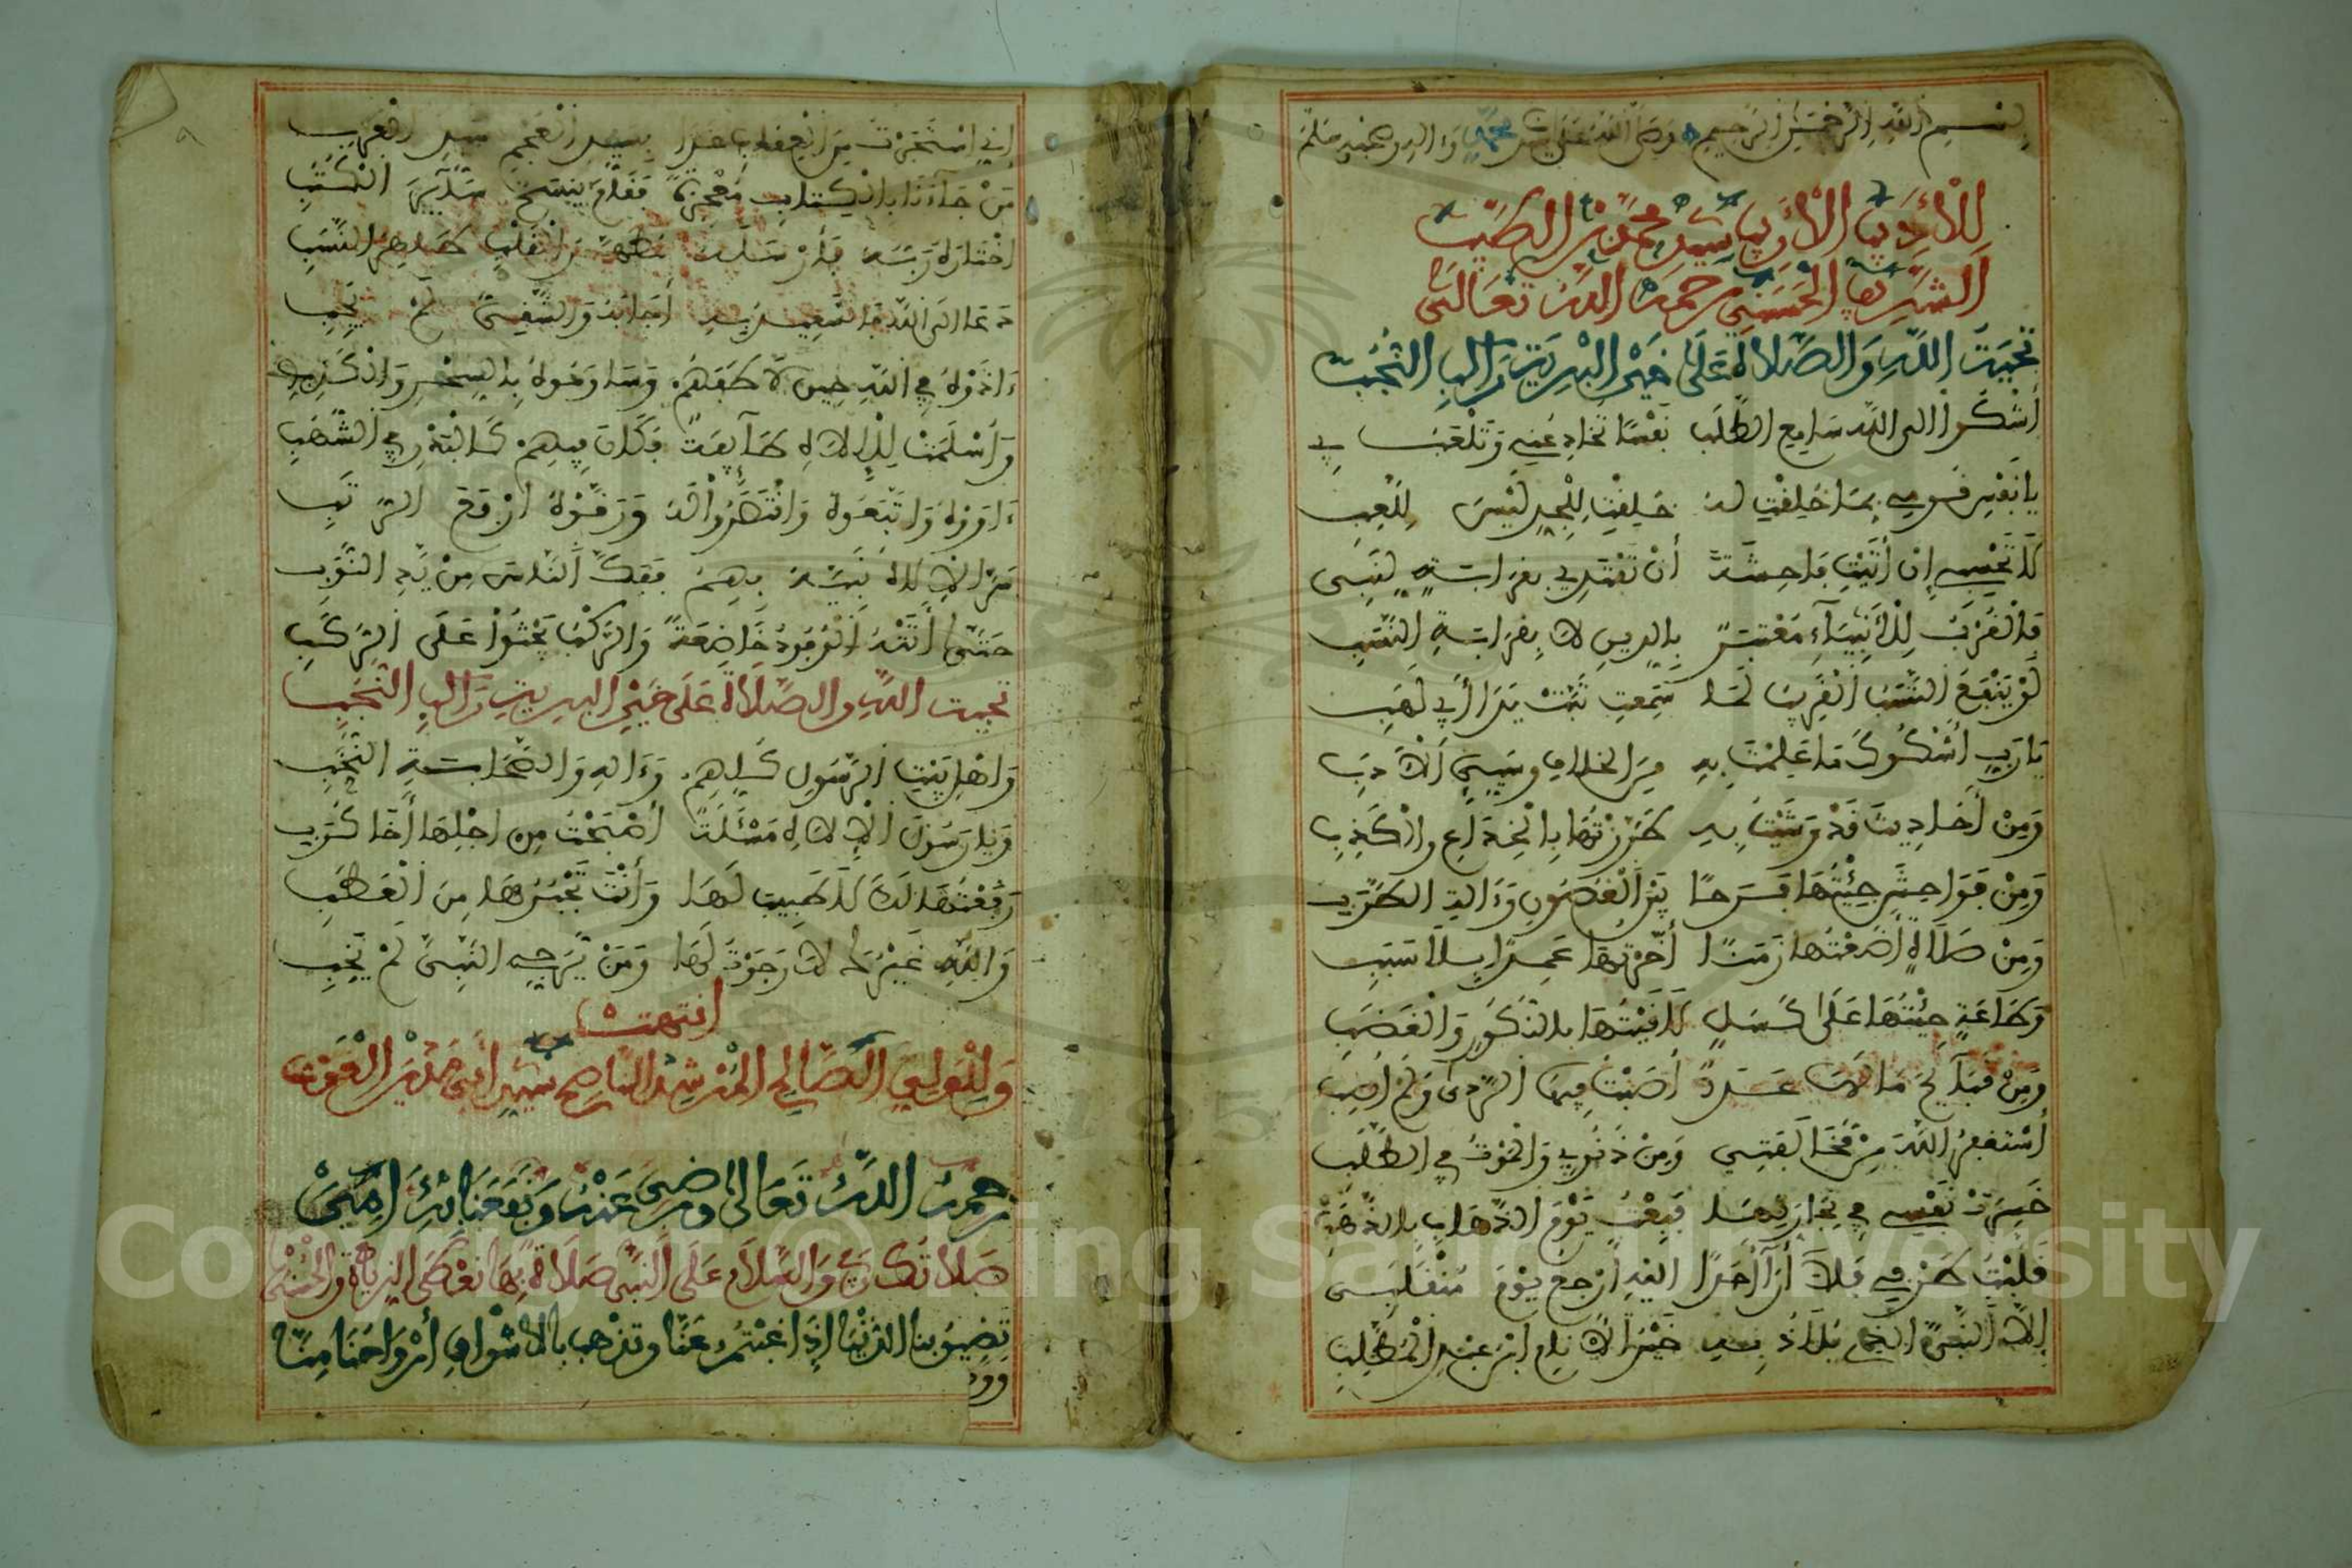 بسم الله الرحمن الرحيم وصلى الله على سيدنا محمد واله وصحبه وسلم
للأديب الأريب سيد محمد بن الطيب
الشريف الحسني رحمه الله تعالى
تحيت الله والصلاة على خير البرية وآله النجب
أشكوا إلى الله سامع الطلب نفسا تخادعني وتلعب بي
يا نفس قومي بما خلقت له خلقت للجد ليس للعب
لا تحسبي ان أتيت فاحشة أن تعتدي بقرابة لنبي
فالقرب للأنبياء معتبر بالدين لا بقرابة النسب
لو ينفع النسب القريب لما سمعت تبت يدا أبي لهب
يا رب أشكوك ما علمت به من الخلاف وسيئ الادب
ومن أحاديث قد وشيت به طرزتها بالخداع والكذب
ومن فواحش جئتها فرحا بين الغصون وءالة الطرب
ومن صلاة أضعتها زمنا أخرتها عمدا بلا سبب
وطاعة جئتها على كسل لاقيتها بالنكور والغضب
ومن قبائح ما لها عدد أصبت فيها الردى ولم أصب
أستغفر الله من مخالفتي ومن ذنوبي والموت في الطلب
خسرت نفسي في تجارتها فبعت يوم الذهاب بالذهب
قلبت طرفي فلا أرا أحدا اليه أرجع يوم منقلبي
إلا النبي الذي يلاذ به خير الانام ابن عبد المطلب
إني استجرت من العقاب غدا بسيد العجم سيد العرب
من جاءنا بالكتاب معجزة فقام ينسخ سائر الكتب
اختاره ربه فأرسله مطهر القلب طاهر النسب
دعا الى الله فالسعيد به أجابه والشقي لم يجب
ءاذوه في الله حين لاطفهم وساوموه بالسحر والكذب
وأسلمت للإلاه طائفة فكان فيهم كالبدر في الشهب
ءاووه واتبعوه وانتصروا له ورقوه أرفع الرتب
حتى أتته الوفود خاضعة والركب يحثوا على الركب
تحيت الله والصلاة على خير البرية وآله النجب
واهل بيت الرسول كلهم وءاله والصحابة النجب
ويا رسول الإلاه مسئلة أصبحت من اجلها أخا كرب
رفعتها لك لا طبيب لها وأنت تجبرها من العطب
والله غيرك لا رجوت لها ومن يرجي النبي لم يخب
انتهت
وللولي الصالح المرشد الناصح سيدي أبي مدين الغوث
رحمه الله تعالى ورضي عنه ونفعنا به ءامين
صلاتك ربي والسلام على النبي صلاة بها نعطى الزيادة والحسنى
تضيق بنا الدنيا إذا غبتم عنا وتذهب بالاشواق أرواحنا منا